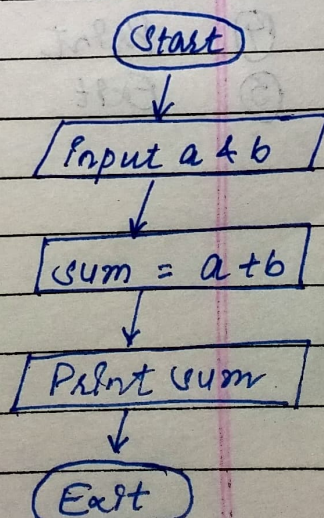 Start
Input a & b
sum = a + b
Print sum
Exit